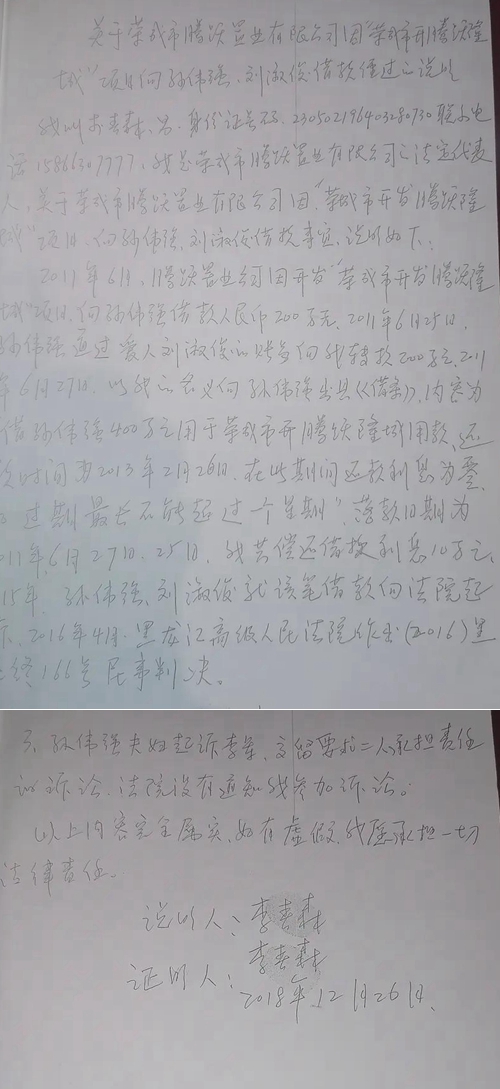 关于荣成市腾跃置业有限公司因"荣成市开腾跃隆
域"项目向孙伟强、刘淑俊借款经过的说明
我叫李春森、男、身份证号码、230502196403280730联系电
话15866307777，我是荣成市腾跃置业有限公司的法定代表
人，关于荣成市腾跃置业有限公司因"荣城市开发腾跃隆
域"项目、向孙伟强、刘淑俊借款事宜、说明如下：
2011年6月，腾跃置业公司因开发"荣成市开发腾跃隆
域"项目、向孙伟强借款人民币200万元、2011年6月25日，
孙伟强通过爱人刘淑俊的账号向我转款200万元、2011
年6月27日、以我的名义向孙伟强出具《借条》，内容为
借孙伟强400万元用于荣成市开腾跃隆域用款，还
款时间为2013年2月26日、在此期间还款利息为零、
过期最长不能超过一个星期"、落款日期为
2011年6月27日、25日、我共偿还借款利息10万元、
15年、孙伟强、刘淑俊就该笔借款向法院起
诉、2016年4月、黑龙江高级人民法院作出（2016）黑
终166号民事判决。
3、孙伟强夫妇起诉李军、文留要求二人承担责任
的诉讼、法院没有通知我参加诉讼。
以上内容完全属实、如有虚假、我愿承担一切
法律责任。
说明人：李春森
李春森
证明人：
2018年12月26日、